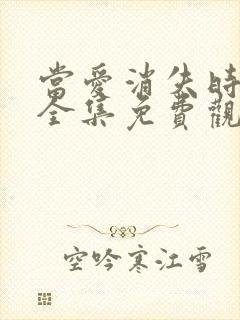 當愛消失時
全集免費觀
空吟寒江雪